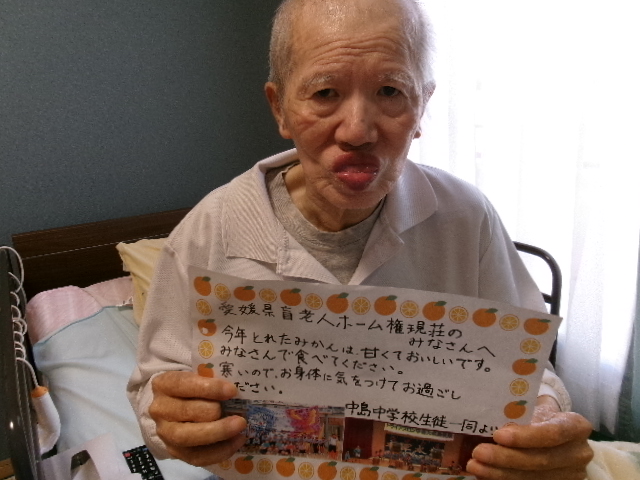 愛媛県盲老人ホーム権現荘の
みなさんへ
今年とれたみかんは、甘くておいしいです。
みなさんで食べてください。
寒いので、お身体に気をつけてお過ごし
ださい。
中島中学校生徒一同より